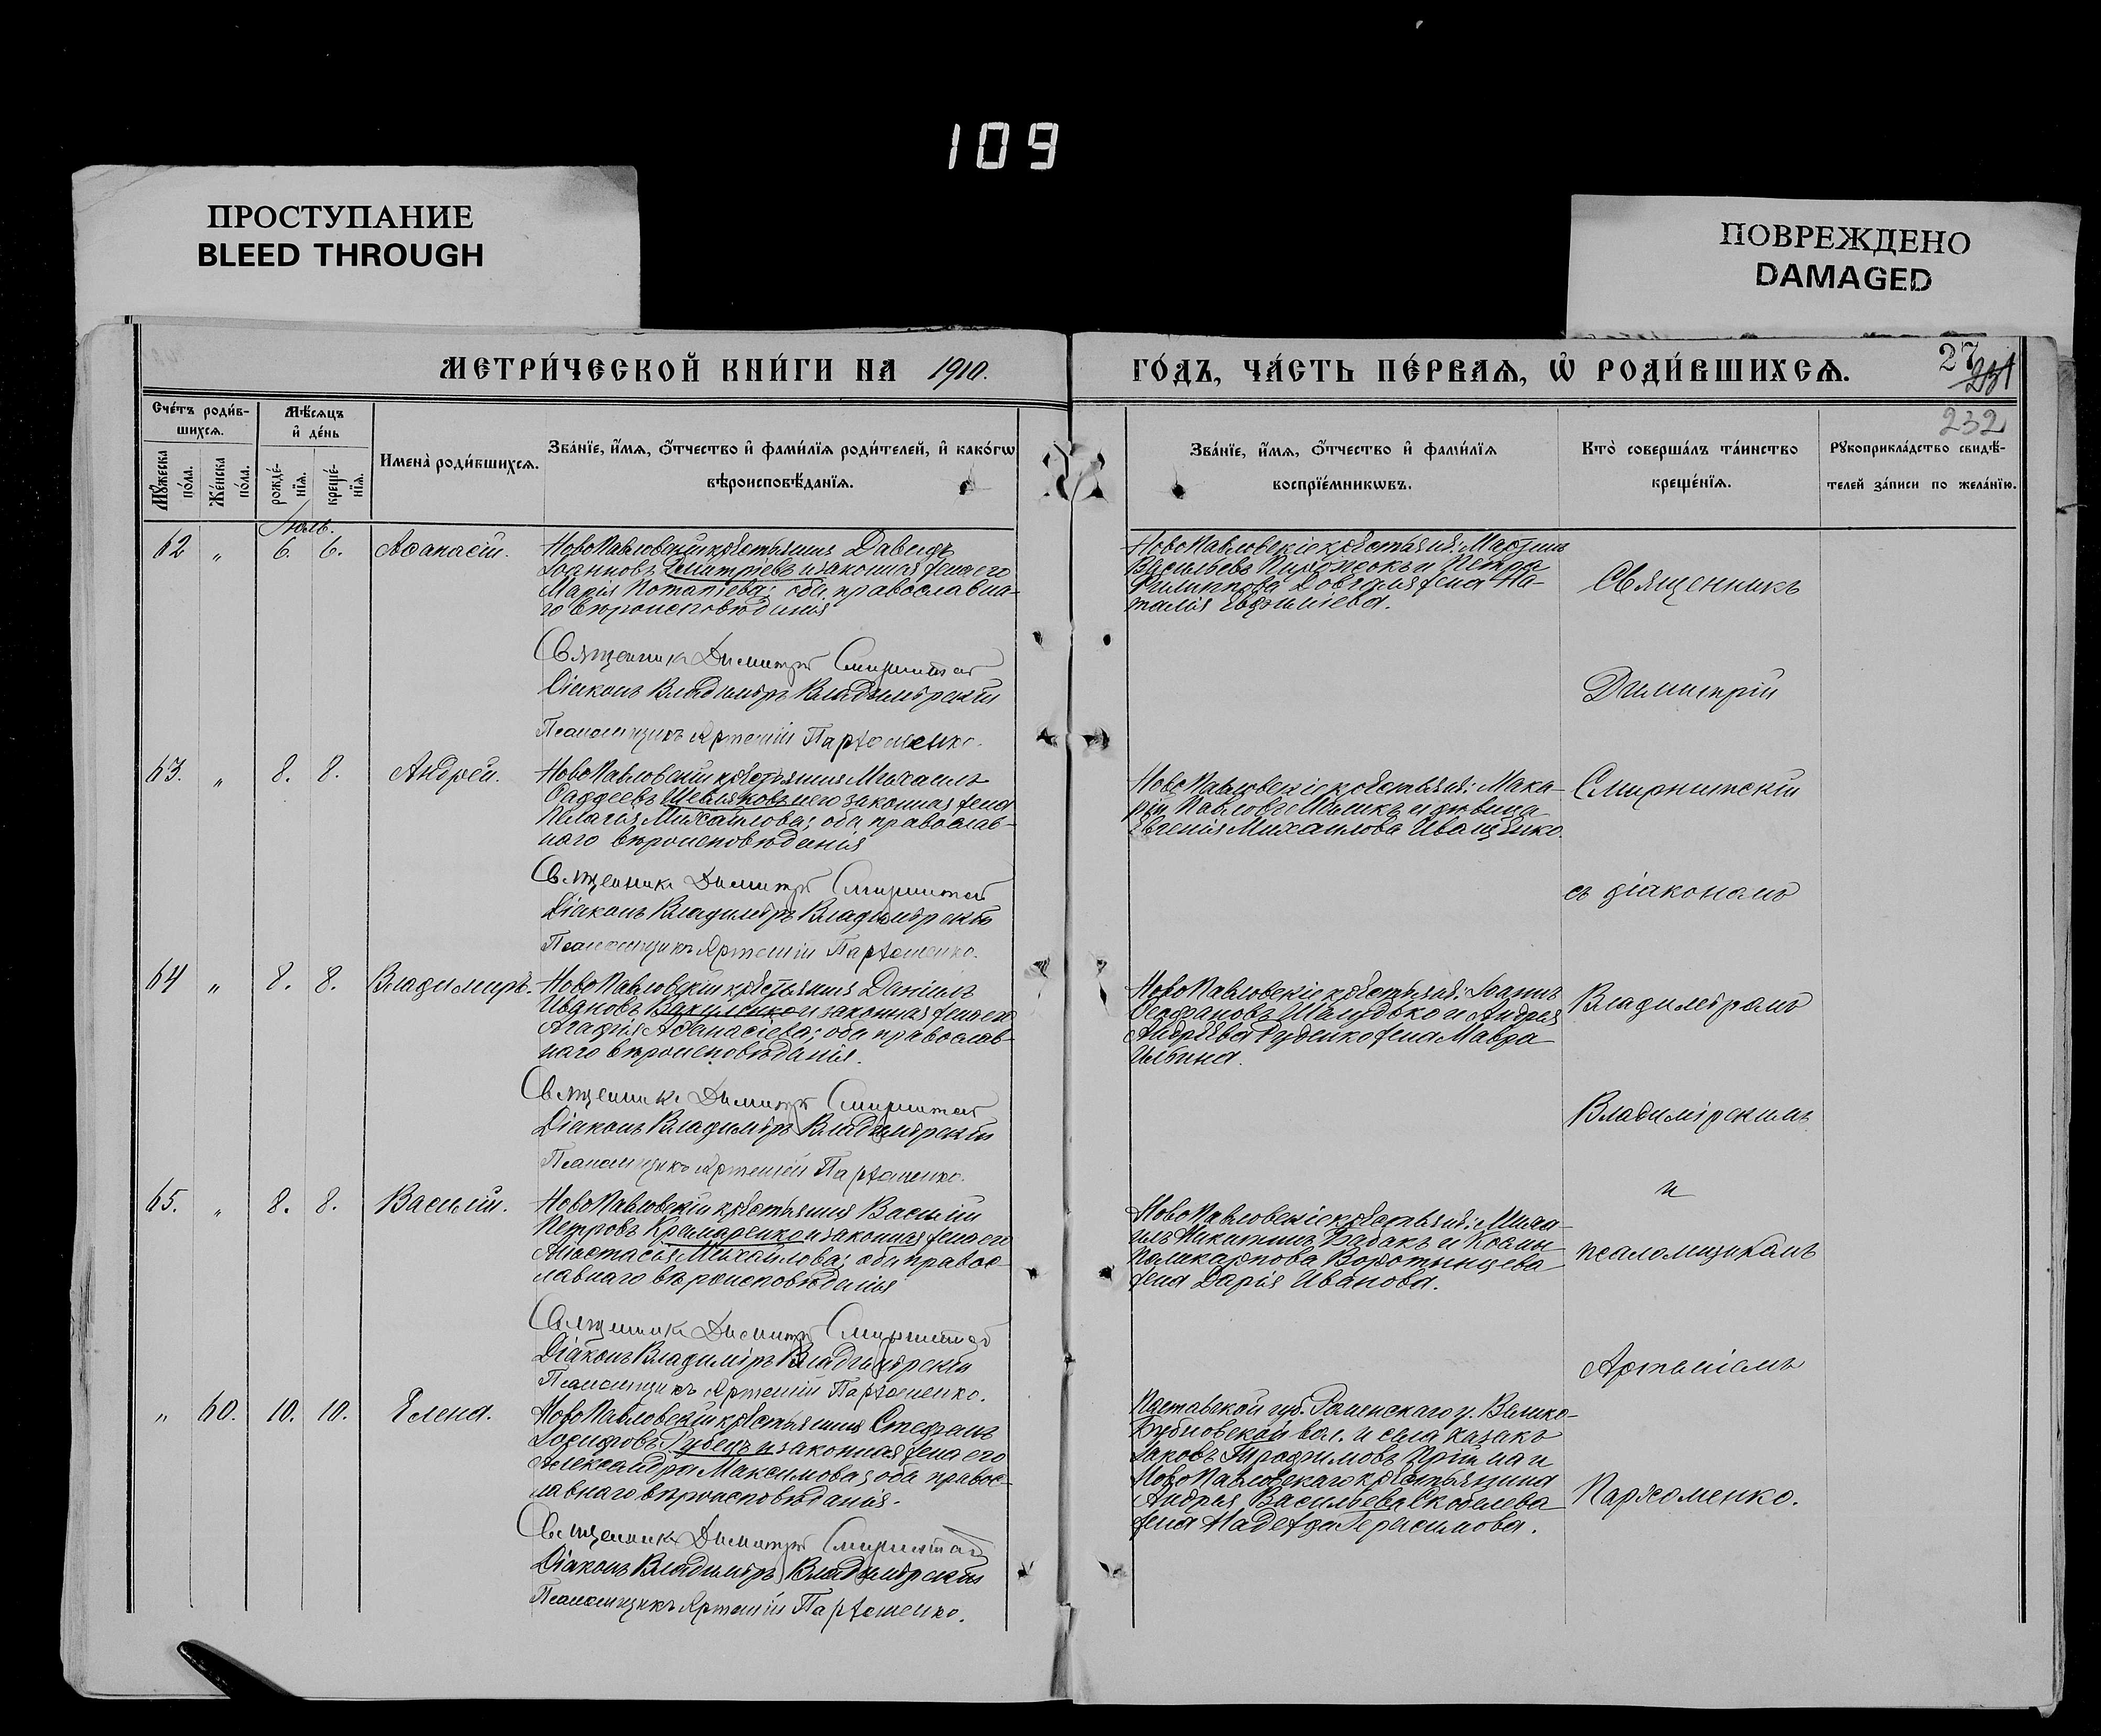 109
ПРОСТУПАНИЕ
BLEED THROUGH
ПОВРЕЖДЕНО
DAMAGED
МЕТРИ́ЧЕСКОЙ КНИ́ГИ НА 1910.
ГО́ДЪ, ЧА́СТЬ ПЕ́РВАѦ, Ѡ РОДИ́ВШИХСѦ.
27
231
232
Сче́тъ роди́в-
шихсѧ.
Мѣ́сѧцъ
и҆ де́нь
Мꙋ́жеска
по́ла.
Же́нска
по́ла.
рожде́-
нїѧ.
креще́-
нїѧ.
Имена̀ роди́вшихсѧ.
Зва́нїе, и҆́мѧ, ѻ҆́тчество и҆ фами́лїѧ роди́телей, и҆ како́гѡ
вѣроисповѣ́данїѧ.
Зва́нїе, и҆́мѧ, ѻ҆́тчество и҆ фами́лїѧ
воспрїе́мникѡвъ.
Кто̀ соверша́лъ та́инство
креще́нїѧ.
Рꙋкоприкла́дство свидѣ́-
телей за́писи по жела́нїю.
Іюль.
62 „ 6. 6. Аѳанасій.
НовоПавловскій крестьянинъ Давидъ
Іоанновъ Дмитріевъ и законная жена его
Марія Потапіева; оба православна-
го вѣроисповѣданія
Священникъ Димитрій Смирнитскій
Діаконъ Владиміръ Владимірскій
Псаломщикъ Артемій Пархоменко.
НовоПавловскіе крестьяне: Мартинъ
Васильевъ и Петра
Филиппова Довгаля жена На-
талія Евфиміева.
63. „ 8. 8. Андрей.
НовоПавловскій крестьянинъ Михаилъ
Фаддеевъ Шевляковъ и его законная жена
Пелагія Михайлова; оба православ-
наго вѣроисповѣданія
Священникъ Димитрій Смирнитскій
Діаконъ Владиміръ Владимірскій
Псаломщикъ Артемій Пархоменко.
НовоПавловскіе крестьяне: Мака-
рій Павловъ и дѣвица
Евгенія Михаилова Иващенко.
64 „ 8. 8. Владимиръ.
НовоПавловскій крестьянинъ Даніилъ
Ивановъ Вакуленко и законная жена его
Агафія Аѳанасіева; оба православ-
наго вѣроисповѣданія.
Священникъ Димитрій Смирнитскій
Діаконъ Владиміръ Владимірскій
Псаломщикъ Артемій Пархоменко.
НовоПавловскіе крестьяне: Іоаннъ
Феофановъ и Андрея
Андреева Руденко жена Мавра
Ильина.
65. „ 8. 8. Василій.
НовоПавловскій крестьянинъ Василій
Петровъ Крамаренко и законная жена его
Анастасія Михайлова; оба правос-
лавнаго вѣроисповѣданія
Священникъ Димитрій Смирнитскій
Діаконъ Владиміръ Владимірскій
Псаломщикъ Артемій Пархоменко.
НовоПавловскіе крестьяне: Миха-
илъ Никитинъ Бабакъ и Космы
Поликарпова Воротынцева
жена Дарія Иванова.
„ 60. 10. 10. Елена.
НовоПавловскій крестьянинъ Стефанъ
Іосифовъ Рубецъ и законная жена его
Александра Максимова; оба правос-
лавнаго вѣроисповѣданія.
Священникъ Димитрій Смирнитскій
Діаконъ Владиміръ Владимірскій
Псаломщикъ Артемій Пархоменко.
Полтавской губ. Роменскаго у. Велико-
Бубновской вол. и села казакъ
Іаковъ Трофимовъ и
НовоПавловскаго крестьянина
Андрея Васильева Скобелева
жена Надежда Герасимова.
Священникъ
Димитрій
Смирнитскій
съ діакономъ
Владиміромъ
Владимірскимъ
и
псаломщикомъ
Артеміемъ
Пархоменко.